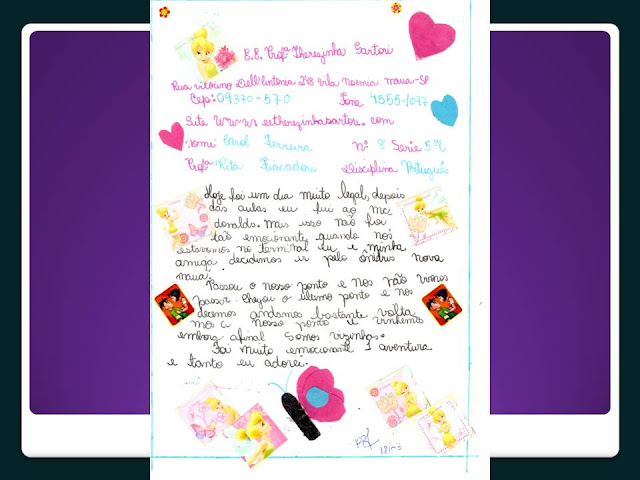 E.E. Profª Therezinha Sartori
Rua vitorino Dell'Antonia 248 vila noemia maua-SP
Cep: 09370-570 Fone 4555-1077
Site www. eetherezinhasartori. com
Nome: Carol Ferreira Nº 8 Serie 5ª
Profª Rita Disciplina Português
Hoje foi um dia muito legal, depois
das aulas eu fui ao mc
donalds. mas isso não foi
tão emocionante quando nós
estavamos no terminal eu e minha
amiga decidimos ir pelo onibus nova
maua.
Passou o nosso ponto e nos não vimos
passar chegou o ultimo ponto e nos
decemos andamos bastante volta
mos a nosso ponto e vinhemos
embora afinal somos vizinhas.
Foi muito emocionante 1 aventura
e tanto eu adorei.